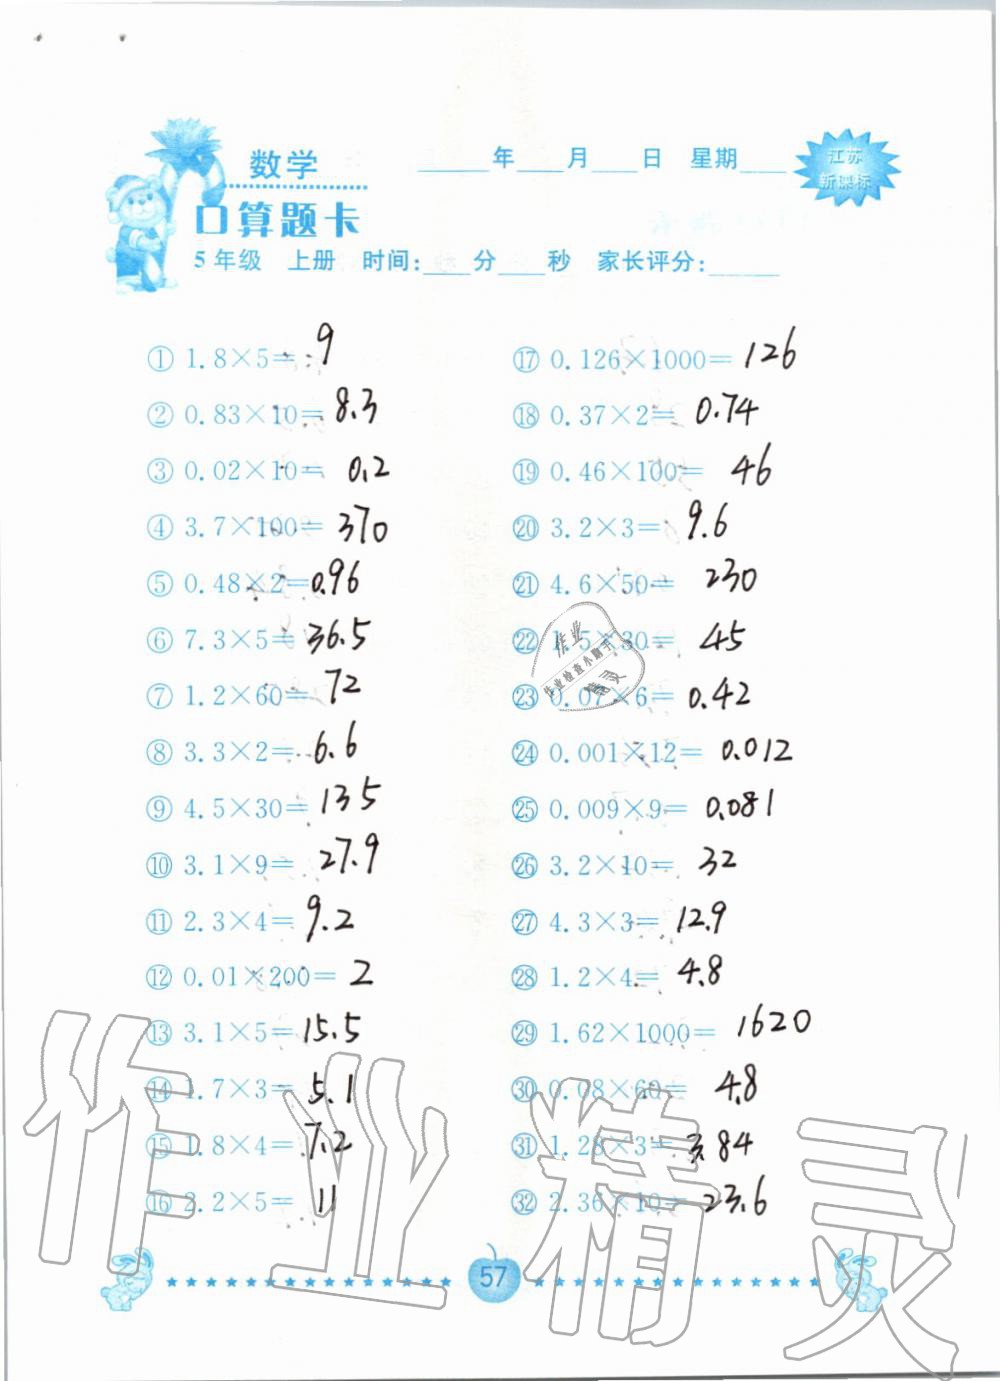 数学
____年____月____日 星期____
江苏
新课标
口算题卡
5年级 上册 时间:____分____秒 家长评分:____
① 1.8×5= 9
② 0.83×10= 8.3
③ 0.02×10= 0.2
④ 3.7×100= 370
⑤ 0.48×2= 0.96
⑥ 7.3×5= 36.5
⑦ 1.2×60= 72
⑧ 3.3×2= 6.6
⑨ 4.5×30= 135
⑩ 3.1×9= 27.9
⑪ 2.3×4= 9.2
⑫ 0.01×200= 2
⑬ 3.1×5= 15.5
⑭ 1.7×3= 5.1
⑮ 1.8×4= 7.2
⑯ 2.2×5= 11
⑰ 0.126×1000= 126
⑱ 0.37×2= 0.74
⑲ 0.46×100= 46
⑳ 3.2×3= 9.6
㉑ 4.6×50= 230
㉒ 1.5×30= 45
㉓ 0.07×6= 0.42
㉔ 0.001×12= 0.012
㉕ 0.009×9= 0.081
㉖ 3.2×10= 32
㉗ 4.3×3= 12.9
㉘ 1.2×4= 4.8
㉙ 1.62×1000= 1620
㉚ 0.08×60= 4.8
㉛ 1.28×3= 3.84
㉜ 2.36×10= 23.6
作业
作业检查小助手
精灵
57
作业精灵